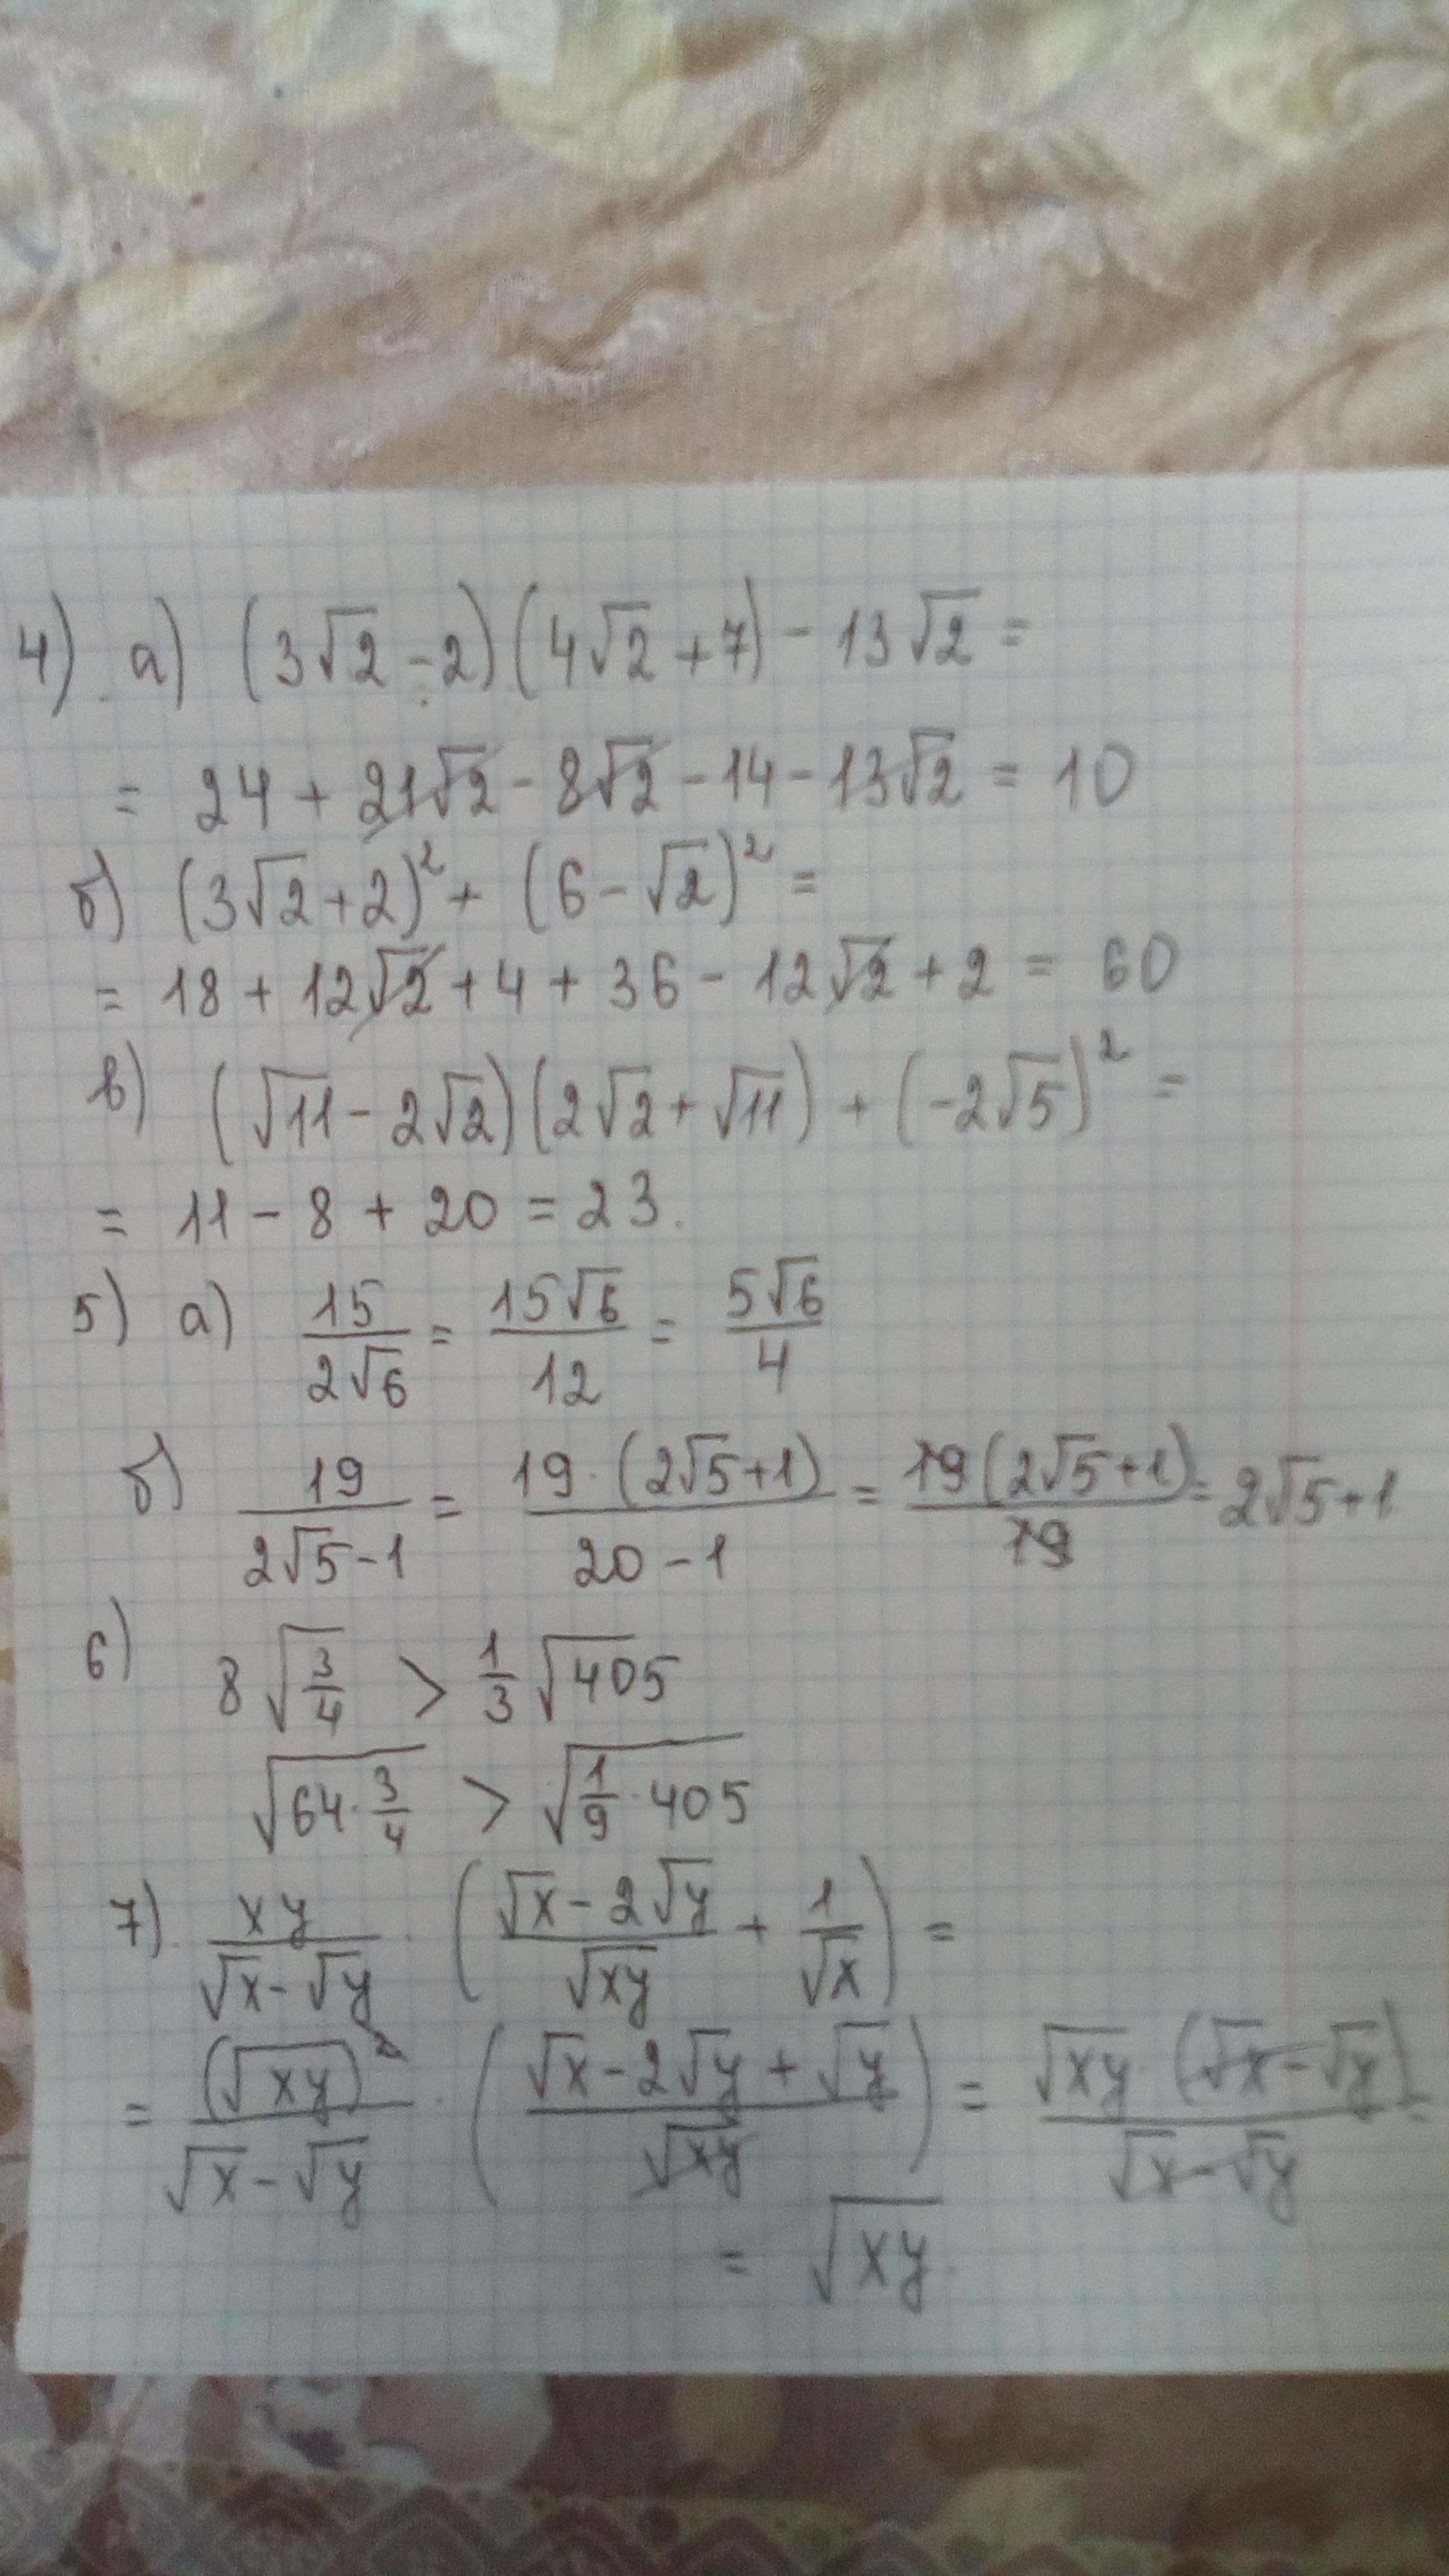 4) а) (3√2 - 2)(4√2 + 7) - 13√2 =
= 24 + 21√2 - 8√2 - 14 - 13√2 = 10
б) (3√2 + 2)² + (6 - √2)² =
= 18 + 12√2 + 4 + 36 - 12√2 + 2 = 60
в) (√11 - 2√2)(2√2 + √11) + (-2√5)² =
= 11 - 8 + 20 = 23.
5) а) 15/(2√6) = 15√6/12 = 5√6/4
б) 19/(2√5-1) = 19·(2√5+1)/(20-1) = 19(2√5+1)/19 = 2√5+1
6) 8√(3/4) > 1/3 √405
√(64·3/4) > √(1/9·405)
7) xy/(√x-√y) · ((√x-2√y)/√xy + 1/√x) =
= (√xy)²/(√x-√y) · ((√x-2√y+√y)/√xy) = √xy·(√x-√y)/(√x-√y) =
= √xy.